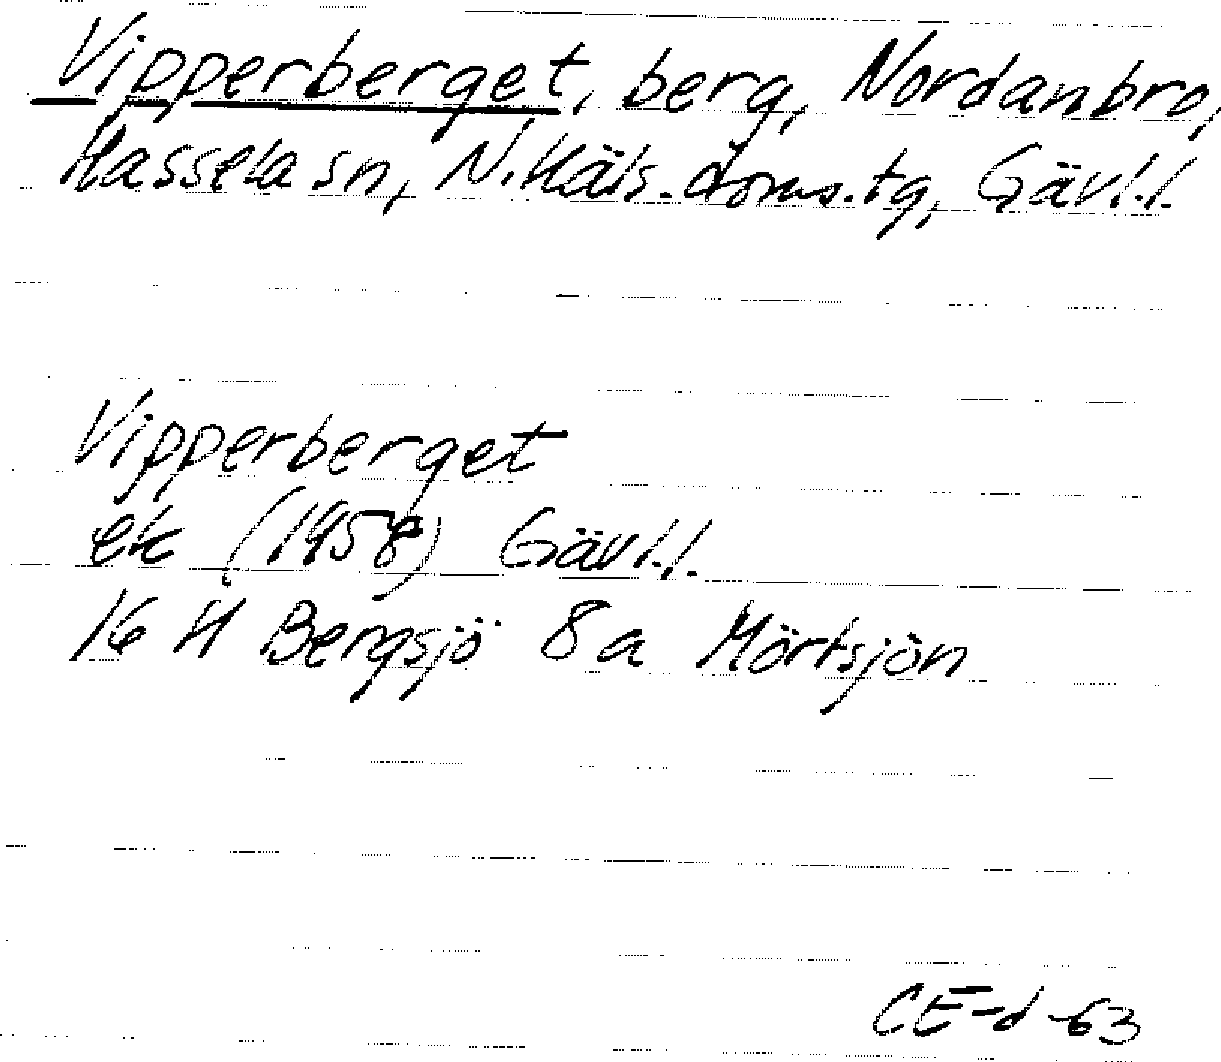 Vipperberget, berg, Nordanbro,
Hassela sn, N. Häls. doms. tg, Gävl.l.
Vipperberget
ek (1958) Gävl.l.
16 H Bergsjö 8a Mörtsjön
CE-d-63